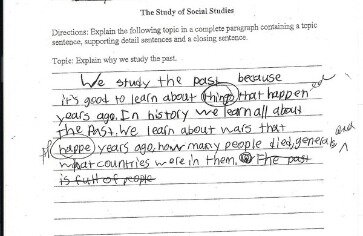 The Study of Social Studies
Directions: Explain the following topic in a complete paragraph containing a topic
sentence, supporting detail sentences and a closing sentence.
Topic: Explain why we study the past.
We study the past because
it's good to learn about things that happen ed
years ago. In history we learn all about
the Past. We learn about wars that
happe years ago. how many people died, generals and
what countries were in them. The past
is full of people